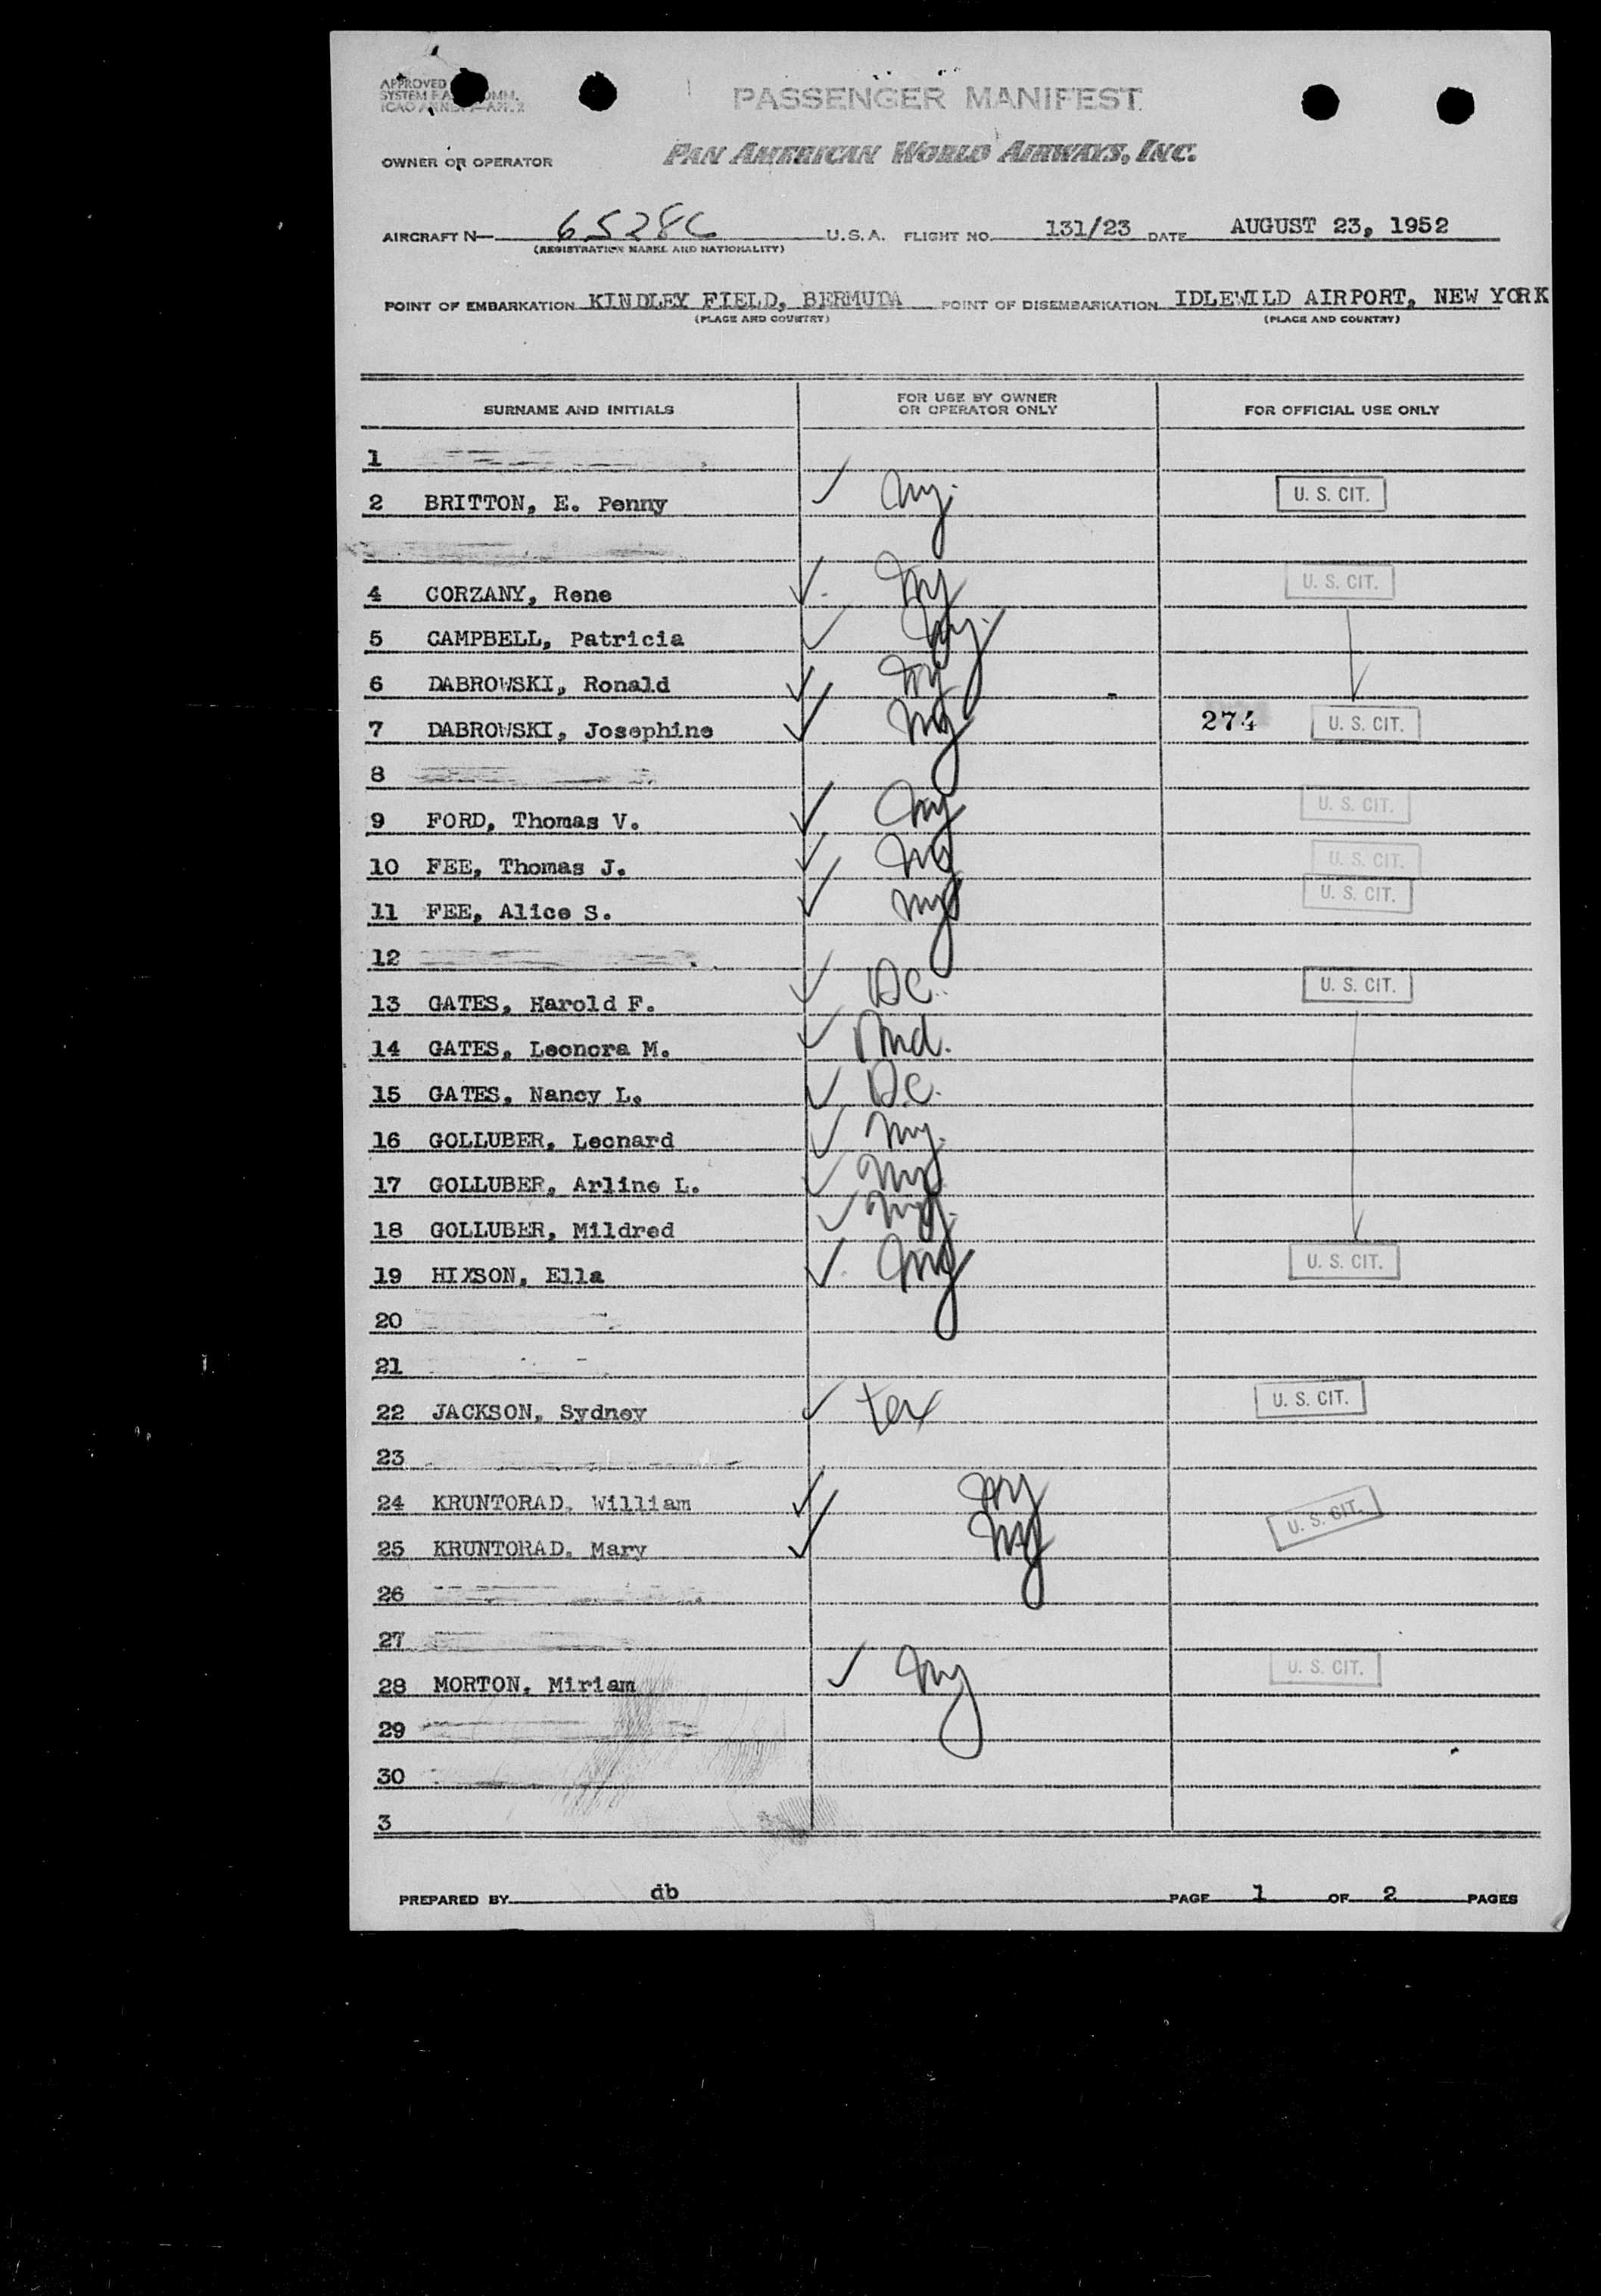 APPROVED
PASSENGER MANIFEST
OWNER OR OPERATOR PAN AMERICAN WORLD AIRWAYS, INC.
AIRCRAFT N— 6528C U.S.A. FLIGHT NO. 131/23 DATE AUGUST 23, 1952
(REGISTRATION MARKS AND NATIONALITY)
POINT OF EMBARKATION KINDLEY FIELD, BERMUDA POINT OF DISEMBARKATION IDLEWILD AIRPORT, NEW YORK
(PLACE AND COUNTRY) (PLACE AND COUNTRY)
SURNAME AND INITIALS FOR USE BY OWNER OR OPERATOR ONLY FOR OFFICIAL USE ONLY
1
2 BRITTON, E. Penny ✓ ny. U. S. CIT.
4 CORZANY, Rene ✓ ny U. S. CIT.
5 CAMPBELL, Patricia ✓ ny.
6 DABROWSKI, Ronald ✓ ny
7 DABROWSKI, Josephine ✓ ny 274 U. S. CIT.
8
9 FORD, Thomas V. ✓ ny U. S. CIT.
10 FEE, Thomas J. ✓ ny U. S. CIT.
11 FEE, Alice S. ✓ ny U. S. CIT.
12
13 GATES, Harold F. ✓ DC. U. S. CIT.
14 GATES, Leonora M. ✓ Md.
15 GATES, Nancy L. ✓ D.C.
16 GOLLUBER, Leonard ✓ ny.
17 GOLLUBER, Arline L. ✓ ny
18 GOLLUBER, Mildred ✓ ny.
19 HIXSON, Ella ✓ ny U. S. CIT.
20
21
22 JACKSON, Sydney ✓ Tex U. S. CIT.
23
24 KRUNTORAD, William ✓ ny
25 KRUNTORAD, Mary ✓ ny U. S. CIT.
26
27
28 MORTON, Miriam ✓ ny U. S. CIT.
29
30
3
PREPARED BY db PAGE 1 OF 2 PAGES